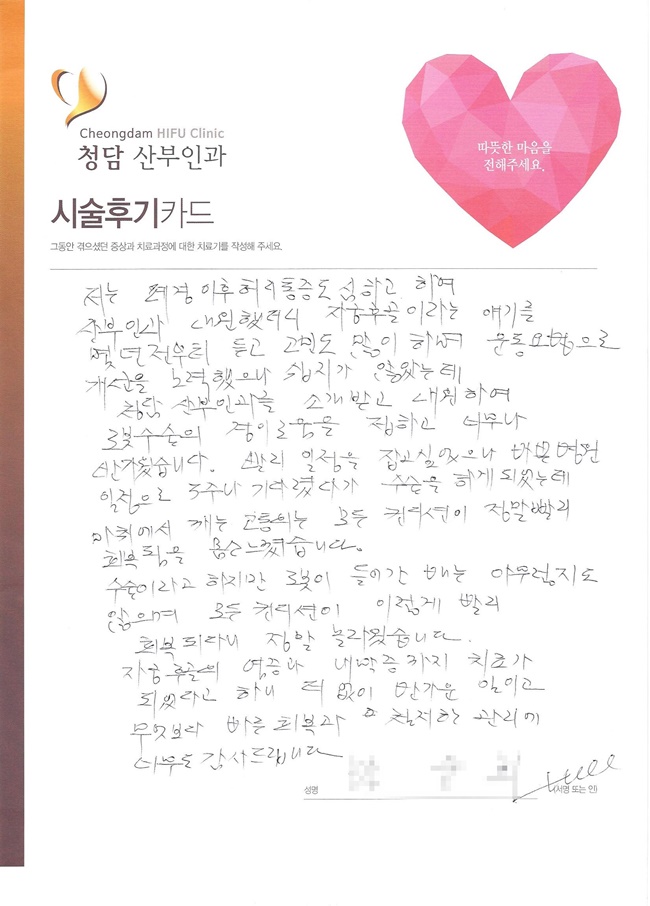 Cheongdam HIFU Clinic
청담 산부인과
따뜻한 마음을
전해주세요.
시술후기카드
그동안 겪으셨던 증상과 치료과정에 대한 치료기를 작성해 주세요.
저는 폐경이후 허리통증도 심하고 하여
산부인과 내원했더니 자궁후굴이라는 얘기를
몇년전부터 듣고 고민도 많이 하며 운동요법으로
개선을 노력했으나 쉽지가 않았는데
청담 산부인과를 소개받고 내원하여
로봇수술의 경이로움을 접하고 너무나
반가웠습니다. 빨리 일정을 잡고싶었으나 바쁜병원
일정으로 3주나 기다렸다가 수술을 하게되었는데
마취에서 깨는 고통외는 모든 컨디션이 정말빨리
회복됨을 몸소느꼈습니다.
수술이라고 하지만 로봇이 들어간 배는 아무렇지도
않으며 모든 컨디션이 이렇게 빨리
회복되다니 정말 놀라웠습니다.
자궁후굴의 염증과 내막증까지 치료가
되었다고 하니 더없이 반가운 일이고
무엇보다 빠른회복과 철저한 관리에
너무도 감사드립니다
성명
(서명 또는 인)